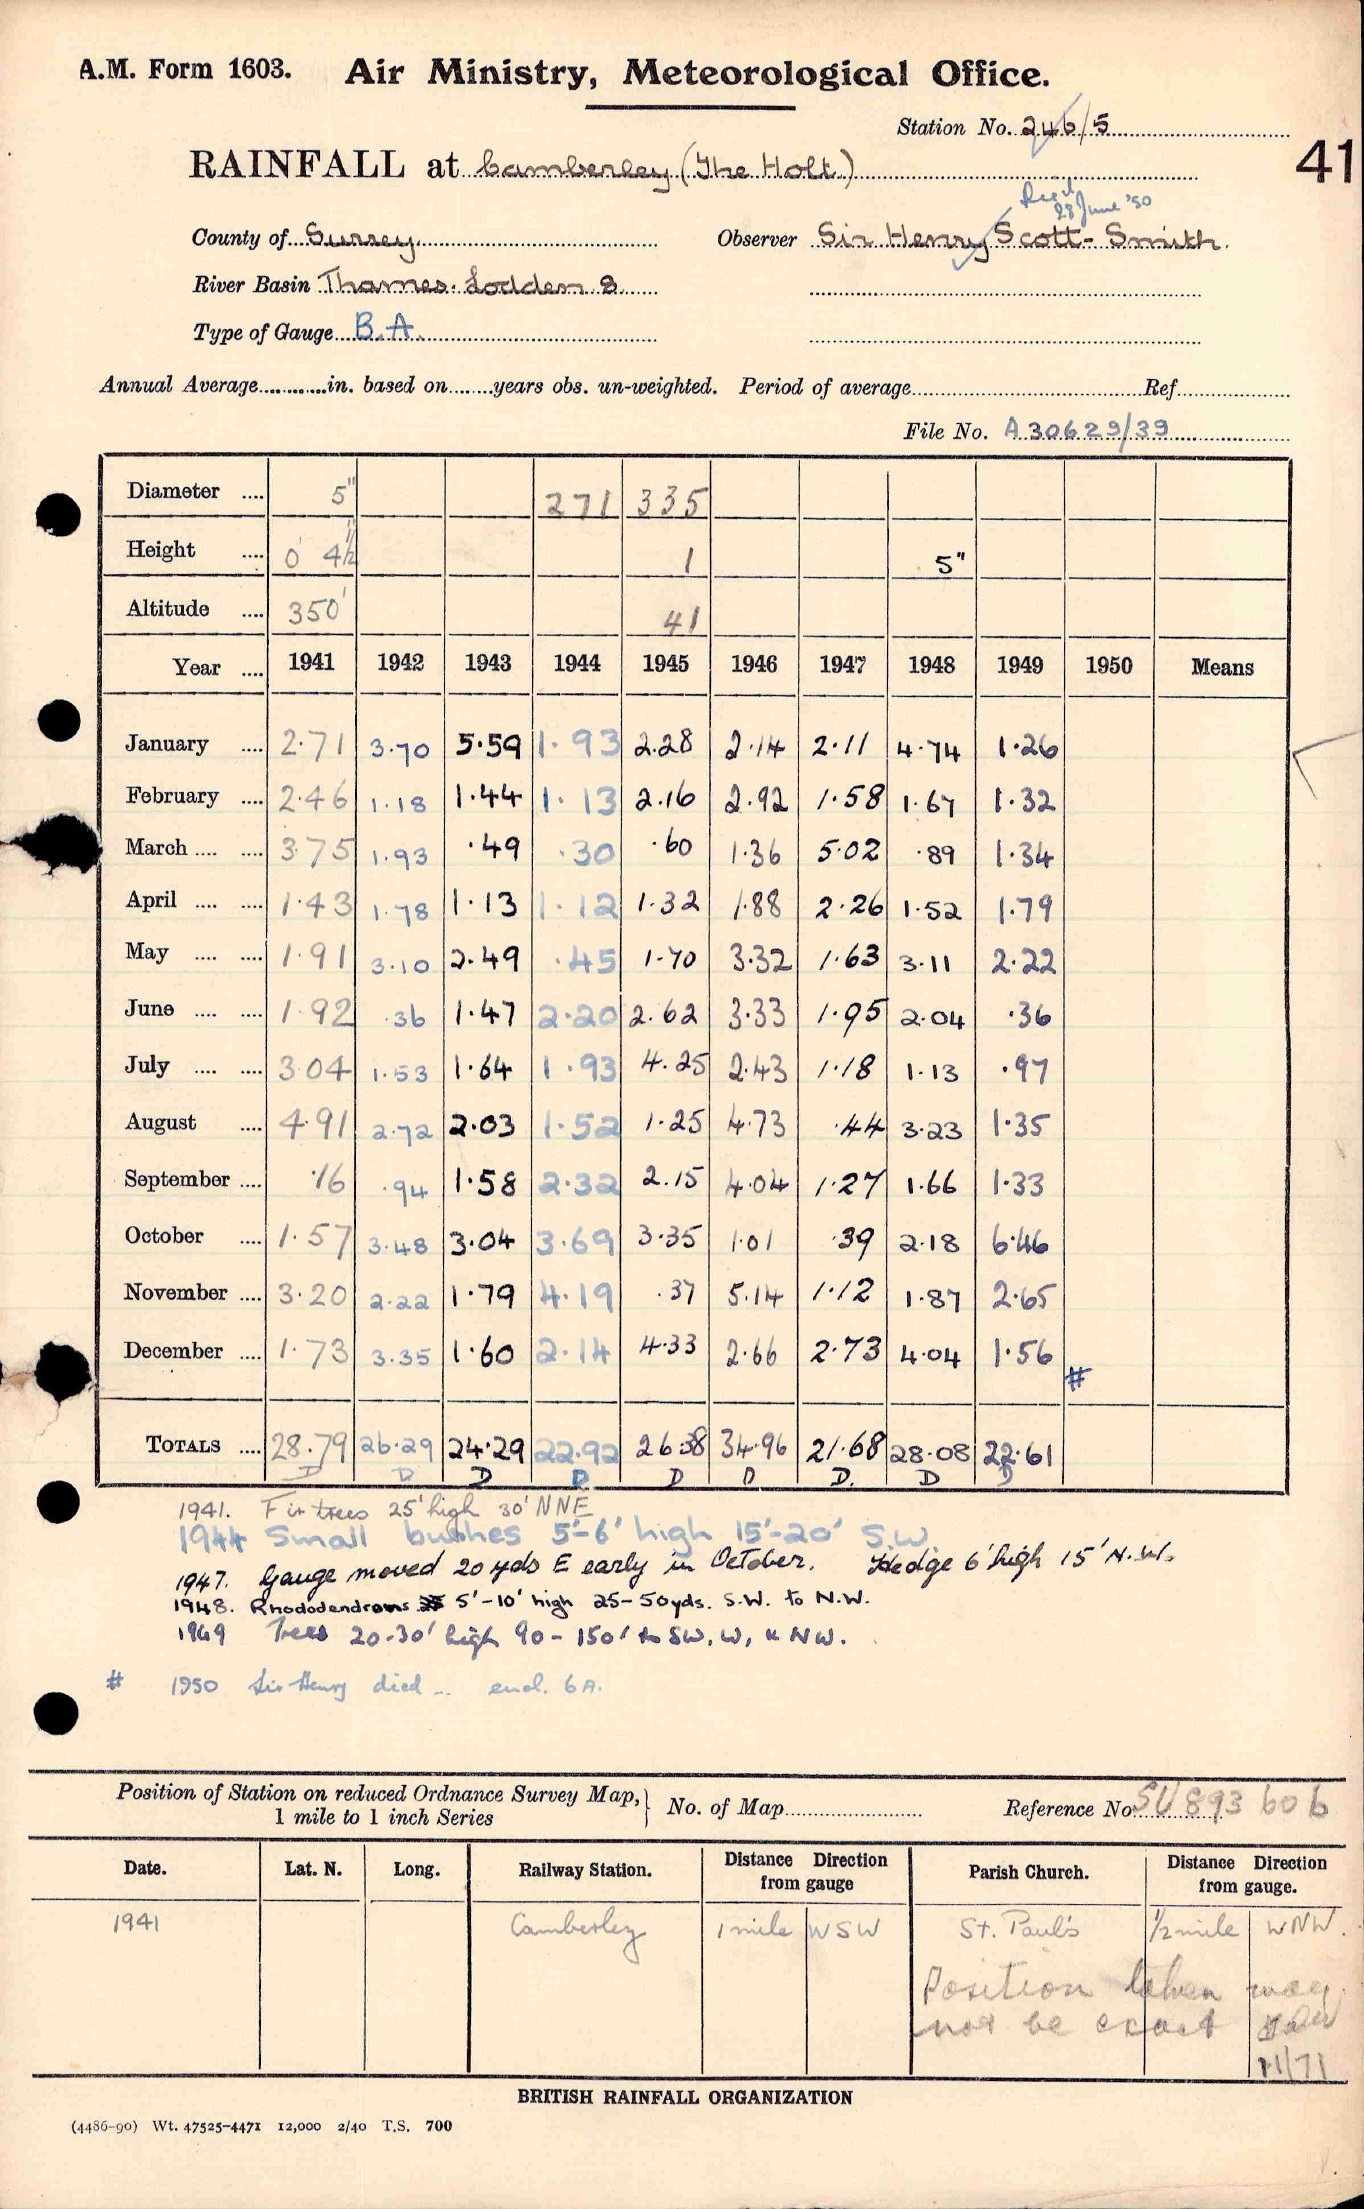 A.M. Form 1603. Air Ministry, Meteorological Office.
Station No. 246/5
41
RAINFALL at Camberley (The Holt)
Died 28 June '50
County of Surrey Observer Sir Henry Scott-Smith
River Basin Thames. Lodden 8
Type of Gauge B.A.
Annual Average in. based on years obs. un-weighted. Period of average Ref
File No. A30629/39
Diameter .... 5" 271 335
Height .... 0' 4½" 1 5"
Altitude .... 350' 41
Year .... 1941 1942 1943 1944 1945 1946 1947 1948 1949 1950 Means
January .... 2.71 3.70 5.59 1.93 2.28 2.14 2.11 4.74 1.26
February .... 2.46 1.18 1.44 1.13 2.16 2.92 1.58 1.67 1.32
March .... .... 3.75 1.93 .49 .30 .60 1.36 5.02 .89 1.34
April .... .... 1.43 1.78 1.13 1.12 1.32 1.88 2.26 1.52 1.79
May .... .... 1.91 3.10 2.49 .45 1.70 3.32 1.63 3.11 2.22
June .... .... 1.92 .36 1.47 2.20 2.62 3.33 1.95 2.04 .36
July .... .... 3.04 1.53 1.64 1.93 4.25 2.43 1.18 1.13 .97
August .... 4.91 2.72 2.03 1.52 1.25 4.73 .44 3.23 1.35
September .... .16 .94 1.58 2.32 2.15 4.04 1.27 1.66 1.33
October .... 1.57 3.48 3.04 3.69 3.35 1.01 .39 2.18 6.46
November .... 3.20 2.22 1.79 4.19 .37 5.14 1.12 1.87 2.65
December .... 1.73 3.35 1.60 2.14 4.33 2.66 2.73 4.04 1.56 #
TOTALS .... 28.79 26.29 24.29 22.92 26.38 34.96 21.68 28.08 22.61
D D D D D D D. D D
1941. Fir trees 25' high 30' NNE
1944 Small bushes 5'-6' high 15'-20' S.W.
1947. Gauge moved 20 yds E early in October. Hedge 6' high 15' N.W.
1948. Rhododendrons 5'-10' high 25-50yds. S.W. to N.W.
1949 Trees 20-30' high 90-150' to SW, W, & NW.
# 1950 Sir Henry died - encl. 6A.
Position of Station on reduced Ordnance Survey Map, 1 mile to 1 inch Series } No. of Map Reference No. SU 893 606
Date. Lat. N. Long. Railway Station. Distance Direction from gauge Parish Church. Distance Direction from gauge.
1941 Camberley 1 mile WSW St. Paul's ½ mile WNW.
Position taken may
not be exact
11/71
BRITISH RAINFALL ORGANIZATION
(4486-90) Wt. 47525-4471 12,000 2/40 T.S. 700